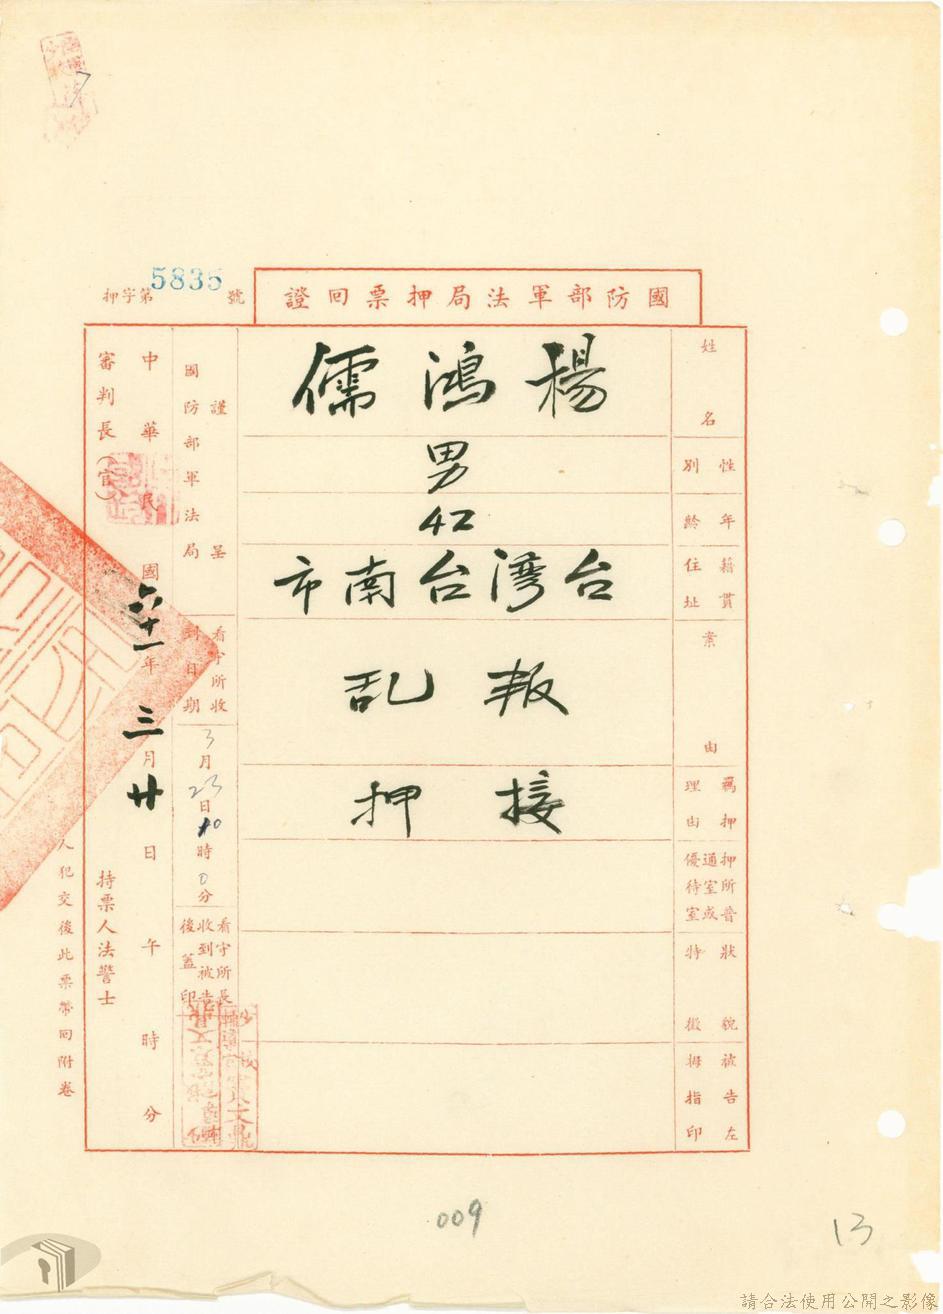 國防部軍法局押票回證
押字第5835號
姓名
楊鴻儒
性別
男
年齡
42
籍貫
住址
台湾台南市
案由
叛乱
羈押理由
接押
押所普通室或優待室
狀貌特徵
被告左拇指印
謹呈
國防部軍法局
看守所收到日期
3月23日10時0分
看守所長收到被告後蓋印
中華民國六十一年三月廿日午時分
審判長(官)
持票人法警士
人犯交後此票帶回附卷
009
13
請合法使用公開之影像